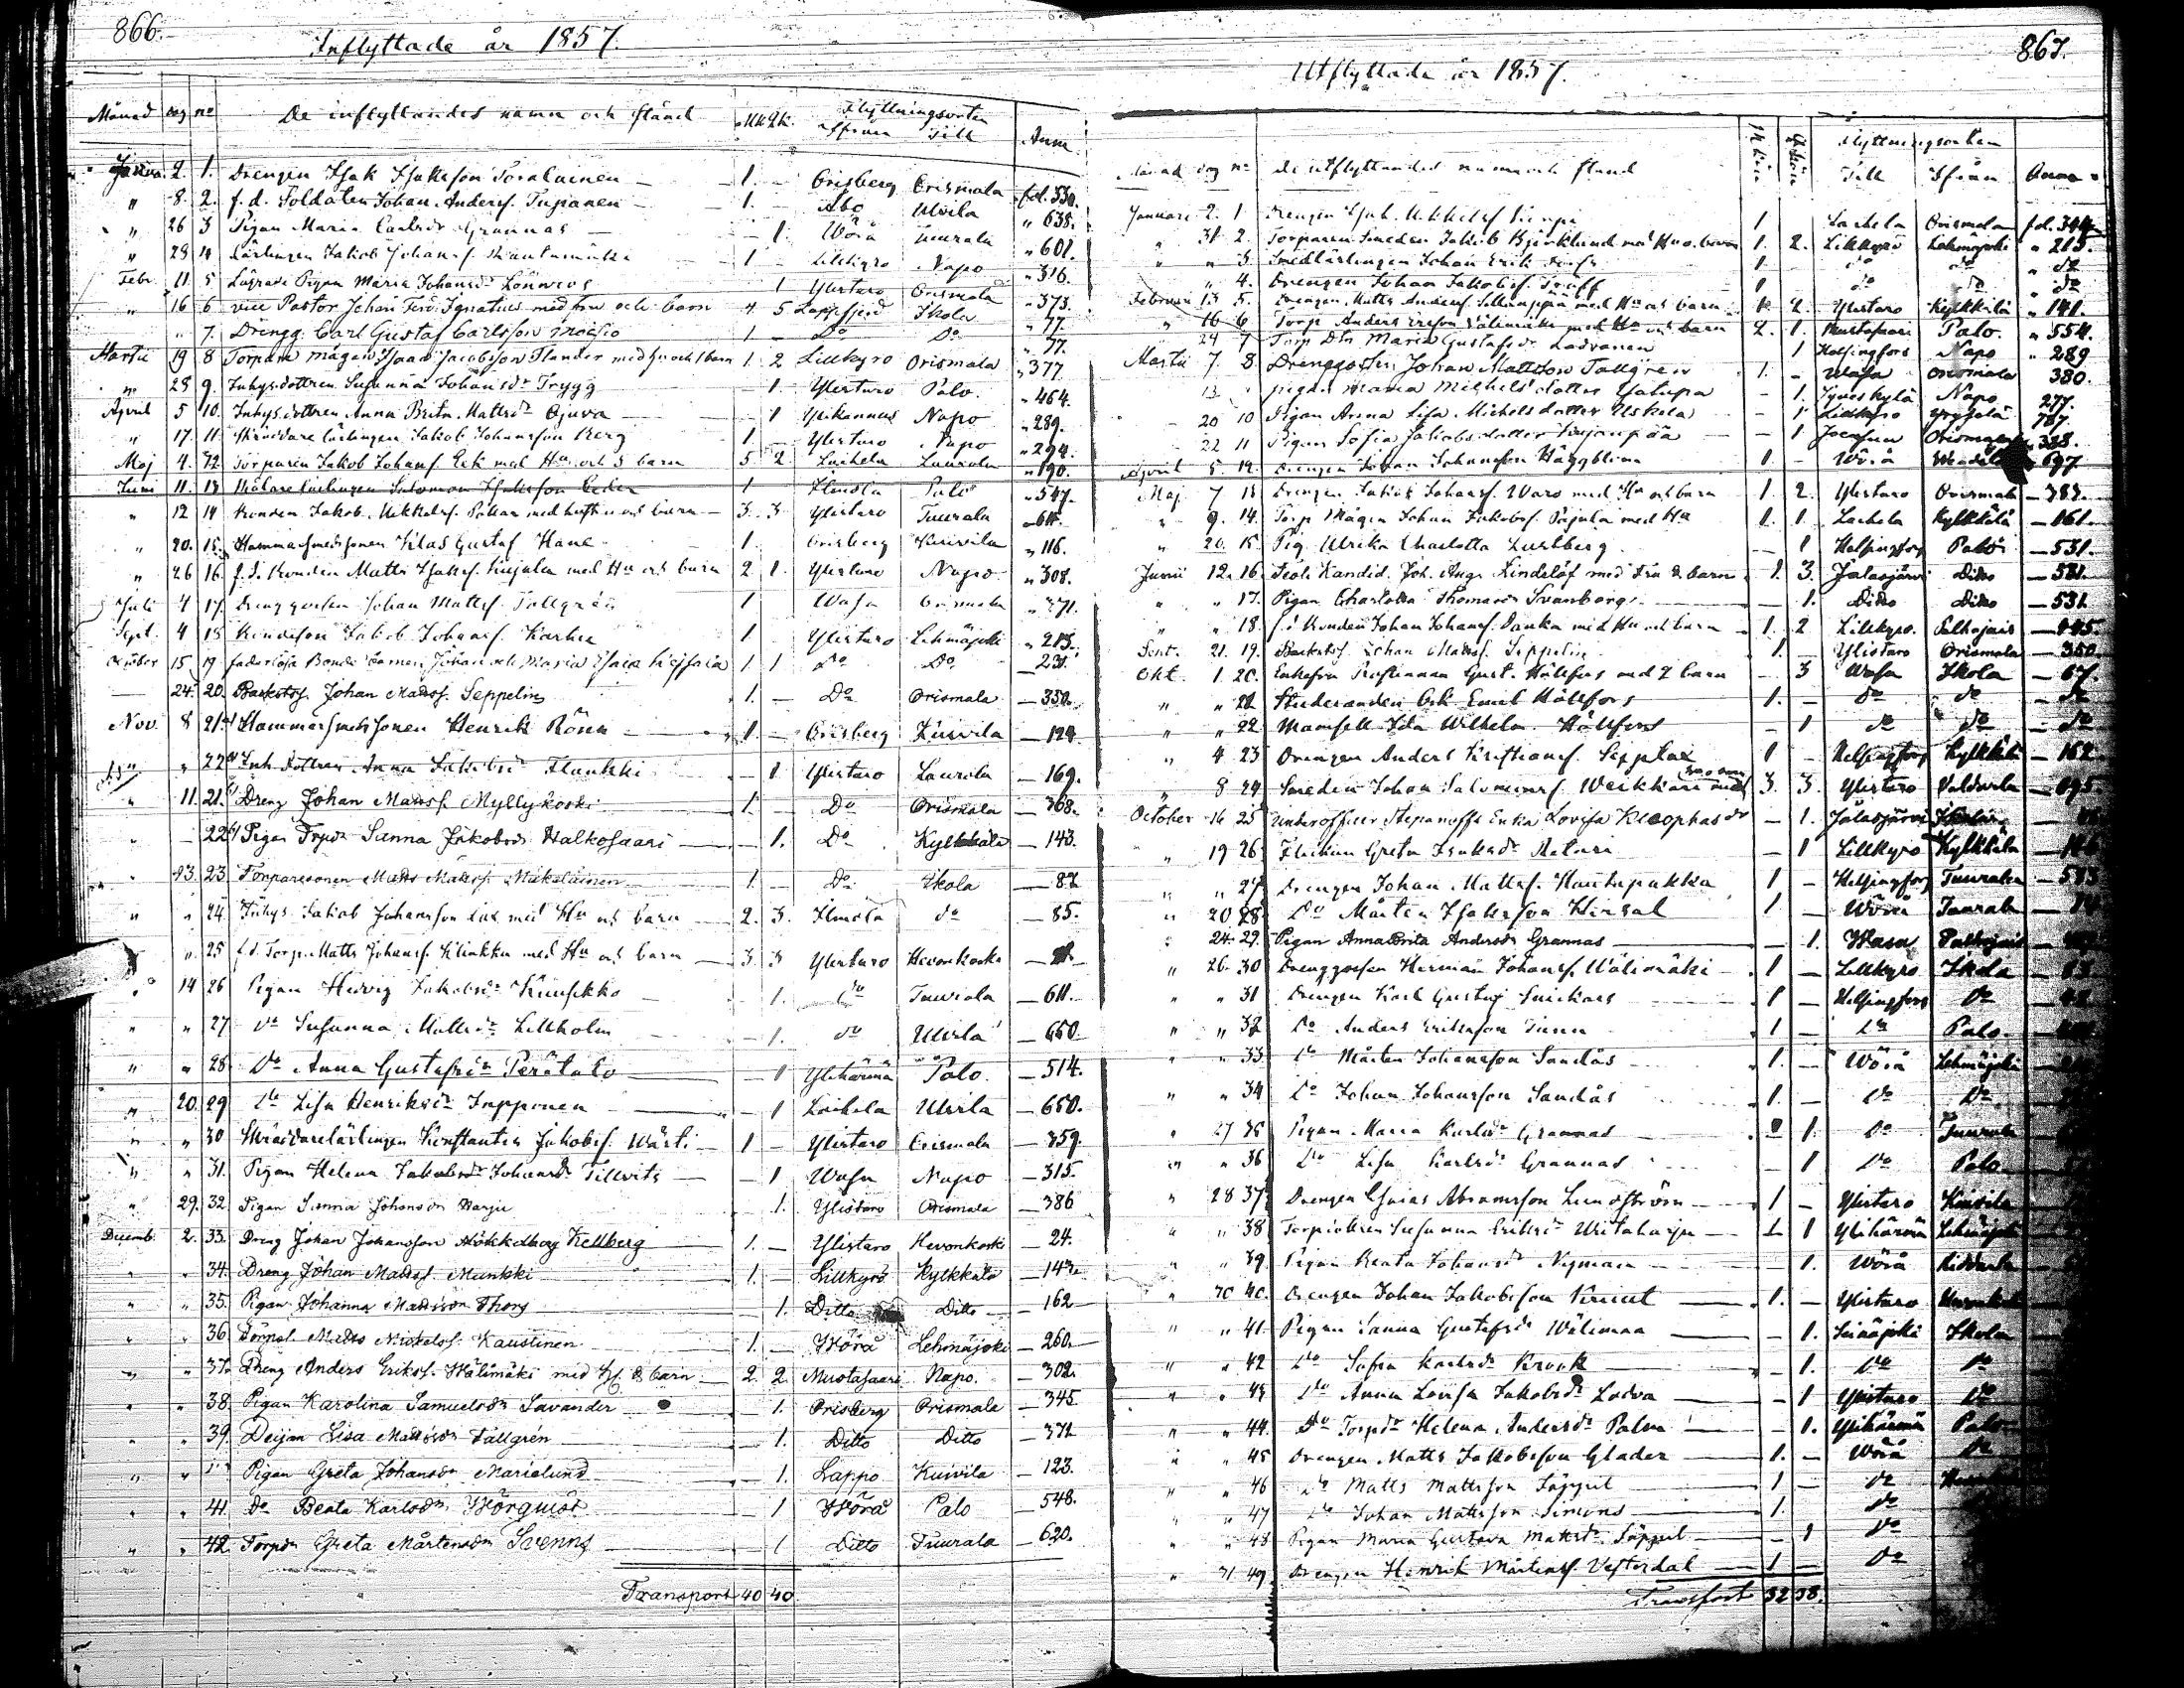 866.
Inflyttade år 1857.
Månad dag no De inflyttandes namn och stånd Mk. Qk. Flyttningsorten Anm
ifrån Till
Janua. 2. 1. Drengen Isak Isaksson 1. Orisberg Orismala fol. 330.
" 8. 2. f.d. Soldaten Johan Andersf. 1. Åbo Ulvila " 638.
" 26 3 Pigan Maria Carlsdr Grannas 1 Wörå Tuurala " 601.
" 28 4 Lärlingen Jakob Johansf. 1 Lillkyro Napo " 316.
Febr. 11 5 Pigan Maria Johansdr 1 Ylistaro Orismala " 373.
" 16 6 vice Pastor Johan Ferd. Ignatius med fru och barn 4 5 Lappfjerd Ikola " 77.
" 7. Dreng. Carl Gustaf Carlsson 1 Do Do " 77.
Martii 19 8 Torpare mågen Isaac Jacobsson Flander med hu och 1 barn 1 2 Lillkyro Orismala " 377
" 28 9. Inhys.dottren Susanna Johansdr Trygg 1. Ylistaro Palo. " 464.
April 5 10. Inhys.dottren Anna Brita Mattsdr Ojuva 1 Ypikannus Napo " 289.
" 17. 11. Skräddare lärlingen Jakob Johansson Berg 1. Ylistaro Napo " 294.
Maj 4. 12 Torparen Jakob Johansf. Eck med Hu och 5 barn 5 2 Laihela Laurola " 190.
Juni 11. 13 Målare lärlingen Salomon Isaksson Ceder 1 Ilmola Palo " 547.
" 12 14 Bonden Jakob Mickelsf. med hustru och barn 3 3 Ylistaro Tuurala " 611.
" 20. 15. Hammarsmedssonen Klas Gustaf Hane 1. Orisberg Kuivila " 116.
" 26 16. f.d. Bonden Matts Isaksf. med Hu och barn 2 1. Ylistaro Napo " 308.
Juli 4 17. Drenggossen Johan Mattsf. Tallgrén 1 Wasa Orismala " 371.
Sept. 4 18 Bondeson Jakob Johansf. Karhu 1 Ylistaro Lehmäjoki " 213.
October 15 19 faderlösa Bonde barnen Johan och Maria 1 1 Do Do " 231.
24. 20. Backstsf. Johan Mattsf. Seppelin 1. Do Orismala 350.
Nov. 8 21. Hammarsmedssonen Henrik Rönn 1. Orisberg Kuivila 124
" 22 Inh. dottren Anna Jakobsdr 1 Ylistaro Laurola 169.
" 11. 21. Dreng Johan Mattsf. Myllykoski 1. Do Orismala 368.
22 Pigan Torpdr Sanna Jakobsdr Halkosaari 1. Do Kylkkälä 143.
" 13. 23. Torparesonen Matts Mattsf. Mäkeläinen 1. Do Ikola 82
" " 24. Inhys. Jakob Johansson Lax med Hu och barn 2. 3. Ilmola do 85.
" 25 f.d. Torp. Matts Johansf. Klinkku med Hu och barn 3 3 Ylistaro Hevonkoski
" 14 26 Pigan Hedvig Jakobsdr 1. do Tuurala 611.
" " 27 Do Susanna Mattsdr Lillholm 1. do Ulvila 650.
" " 28 Do Anna Gustafsdr Perätalo 1 Ylihärmä Palo. 514.
" 20. 29 Do Lisa Henriksdr Impponen 1 Laihela Ulvila 650.
" " 30 Skräddarelärlingen Konstantin Jakobsf. Wärli 1 Ylistaro Orismala 359.
" " 31. Pigan Helena Jakobsdr Johansdr Tillvits 1 Wasa Napo 315.
" 29. 32. Pigan Sanna Johansdr Harju 1. Ylistaro Orismala 386
Decemb. 2. 33. Dreng Johan Johansson Kellberg 1. Ylistaro Hevonkoski 24.
" " 34. Dreng Johan Mattsf. Munkki 1. Lillkyro Kylkkälä 143.
" " 35. Pigan Johanna Mattsdr Thors 1. Ditto Ditto 162
" " 36 Torpsf. Matts Nickolsf. Kaustinen 1. Wörå Lehmäjoki 260.
" " 37. Dreng Anders Eriksf. Wälimäki med H & barn 2. 2. Mustasaari Napo. 302.
" " 38. Pigan Karolina Samuelsdr Savander 1. Orisberg Orismala 345
" " 39. Deijan Lisa Mattsdr Tallgrén 1. Ditto Ditto 371
" " Pigan Greta Johansdr Marielund 1. Lappo Kuivila 123.
" " 41. Do Beata Karlsdr Wörquist 1 Wörå Palo 548.
" " 42. Torpdr Greta Mårtensdr Svenns 1 Ditto Tuurala 620.
Transport 40 40
867.
Utflyttade år 1857.
Månad dag no De utflyttandes namn och stånd Flyttningsorten
Till Ifrån Anm
Januari 2. 1 Drengen Isak Mickelsf. 1 Laihela Orismala fol. 344
" 31 2. Torparen Smeden Jakob Björklund med Hu o. barn 1. 2. Lillkyro Lehmäjoki " 213.
" " 3. Smedlärlingen Johan Erik 1 do do " do
" 4. Drengen Johan Jakobsf. Träff 1 do do " do
Februari 13 5. Drengen Matts Andersf. med Hu och barn 1. 2. Ylistaro Kylkkälä " 141.
" 16 6 Torp. Anders Ersson Wälimäki med Hu och barn 2. 1. Mustasaari Palo. " 554.
" 24 7 Torp Dtr Maria Gustafsdr Ladvanen 1 Helsingfors Napo " 289
Martii 7. 8. Drenggossen Johan Mattsson Tallgren 1. Wasa Orismala 380.
13 " pigan Maria Michels dotter Yalupa 1. Jyveskylä Napo 277.
20 10 Pigan Anna Lisa Michelsdotter Uskela 1 Lillkyro 787.
22 11 Pigan Sofia Jakobsdotter 1. Joensuu Orismala 338.
April 5. 12. Drengen Johan Johansson Häggblom 1. Wörå 697
Maj 7 13 Drengen Jakob Johansf. Waro med Hu och barn 1. 2. Ylistaro Orismala 383.
" 9. 14. Torp. Mågen Johan Jakobsf. Pajula med Hu 1. 1. Laihela Kylkkälä 161.
" 20. 15. Pig. Ulrika Charlotta Lurlberg 1 Helsingfors Palo 531.
Junii 12. 16. Teol. Kandid. Joh. Aug. Lindelöf med Fru & barn 1. 3. Jalasjärvi Ditto 531.
" " 17. Pigan Charlotta Thomasdr Svanborg 1. Ditto Ditto 531.
" " 18. f.d. Bonden Johan Johansf. Danka med Hu och barn 1. 2 Lillkyro. Palhojais
Sept. 21. 19. Backstsf. Johan Mattsf. Seppelin 1. Ylistaro Orismala 350.
Okt. 1. 20. Enkefru Prostinnan Gust. Hällfors med 2 barn 3 Wasa Ikola 67.
" " 21 Studeranden Osk. Emil Hällfors 1. do do do
" " 22 Mamsell Ida Wilhelm. Hällfors 1 do do do
" 4 23 Drengen Anders Kristiansf. Sipplax 1 Helsingfors Kylkkälä 162.
" 8 24 Smeden Johan Salomonsf. Weikkari med 3. 3. Ylistaro Valdarla 695.
October 16 25 Underofficer Stepanoffs Enka Lovisa Kleophasdr 1. Jalasjärvi Ikola
" 19 26 Flickan Greta Isaksdr 1 Lillkyro Kylkkälä
" " 27 Drengen Johan Mattsf. Hautapakka 1 Helsingfors Tuurala
" 20 28 Do Mårten Isaksson Hirsal 1 Wörå Tuurala
" 24. 29. Pigan Anna Brita Andersdr Grannas 1. Wasa Palhojais
" 26. 30 Drenggossen Herman Johansf. Wälimäki 1 Lillkyro Ikola
" " 31 Drengen Karl Gustaf Snickars 1 Helsingfors Do
" " 32 Do Anders Eriksson 1 Do Palo.
" " 33 Do Mårten Johansson Sandås 1. Wörå Lehmäjoki
" " 34 Do Johan Johansson Sandås 1. Do Do
" 27 35 Pigan Maria Karlsdr Grannas 1. Do Tuurala
" " 36 Do Lisa Karlsdr Grannas 1 Do Palo
" 28 37 Drengen Esaias Abramsson Lundström 1 Ylistaro Kuivila
" " 38 Torpdottren Susanna Eriksdr Writaharju 1 Ylihärmä Lehmäjoki
" " 39 Pigan Beata Johansdr Nyman 1. Wörå
" 30 40. Drengen Johan Jakobsson Knuut 1. Ylistaro
" " 41. Pigan Sanna Gustafsdr Wälimaa 1. Seinäjoki Ikola
" " 42 Do Sofia Karlsdr Krook 1. Do Do
" " 43 Do Anna Lovisa Jakobsdr Ladva 1 Ylistaro Do
" " 44 Do Torpdr Helena Andersdr Palm 1. Ylihärmä Palo
" " 45 Drengen Matts Jakobsson Glader 1. Wörå Do
" " 46 Do Matts Mattsson 1 Do
" " 47 Do Johan Mattsson Simons 1. Do
" " 48 Pigan Maria Gustava Mattsdr 1 Do
" 31 49 Drengen Henrik Mårtensf. Vesterdal 1 Do
Transport 52 58.